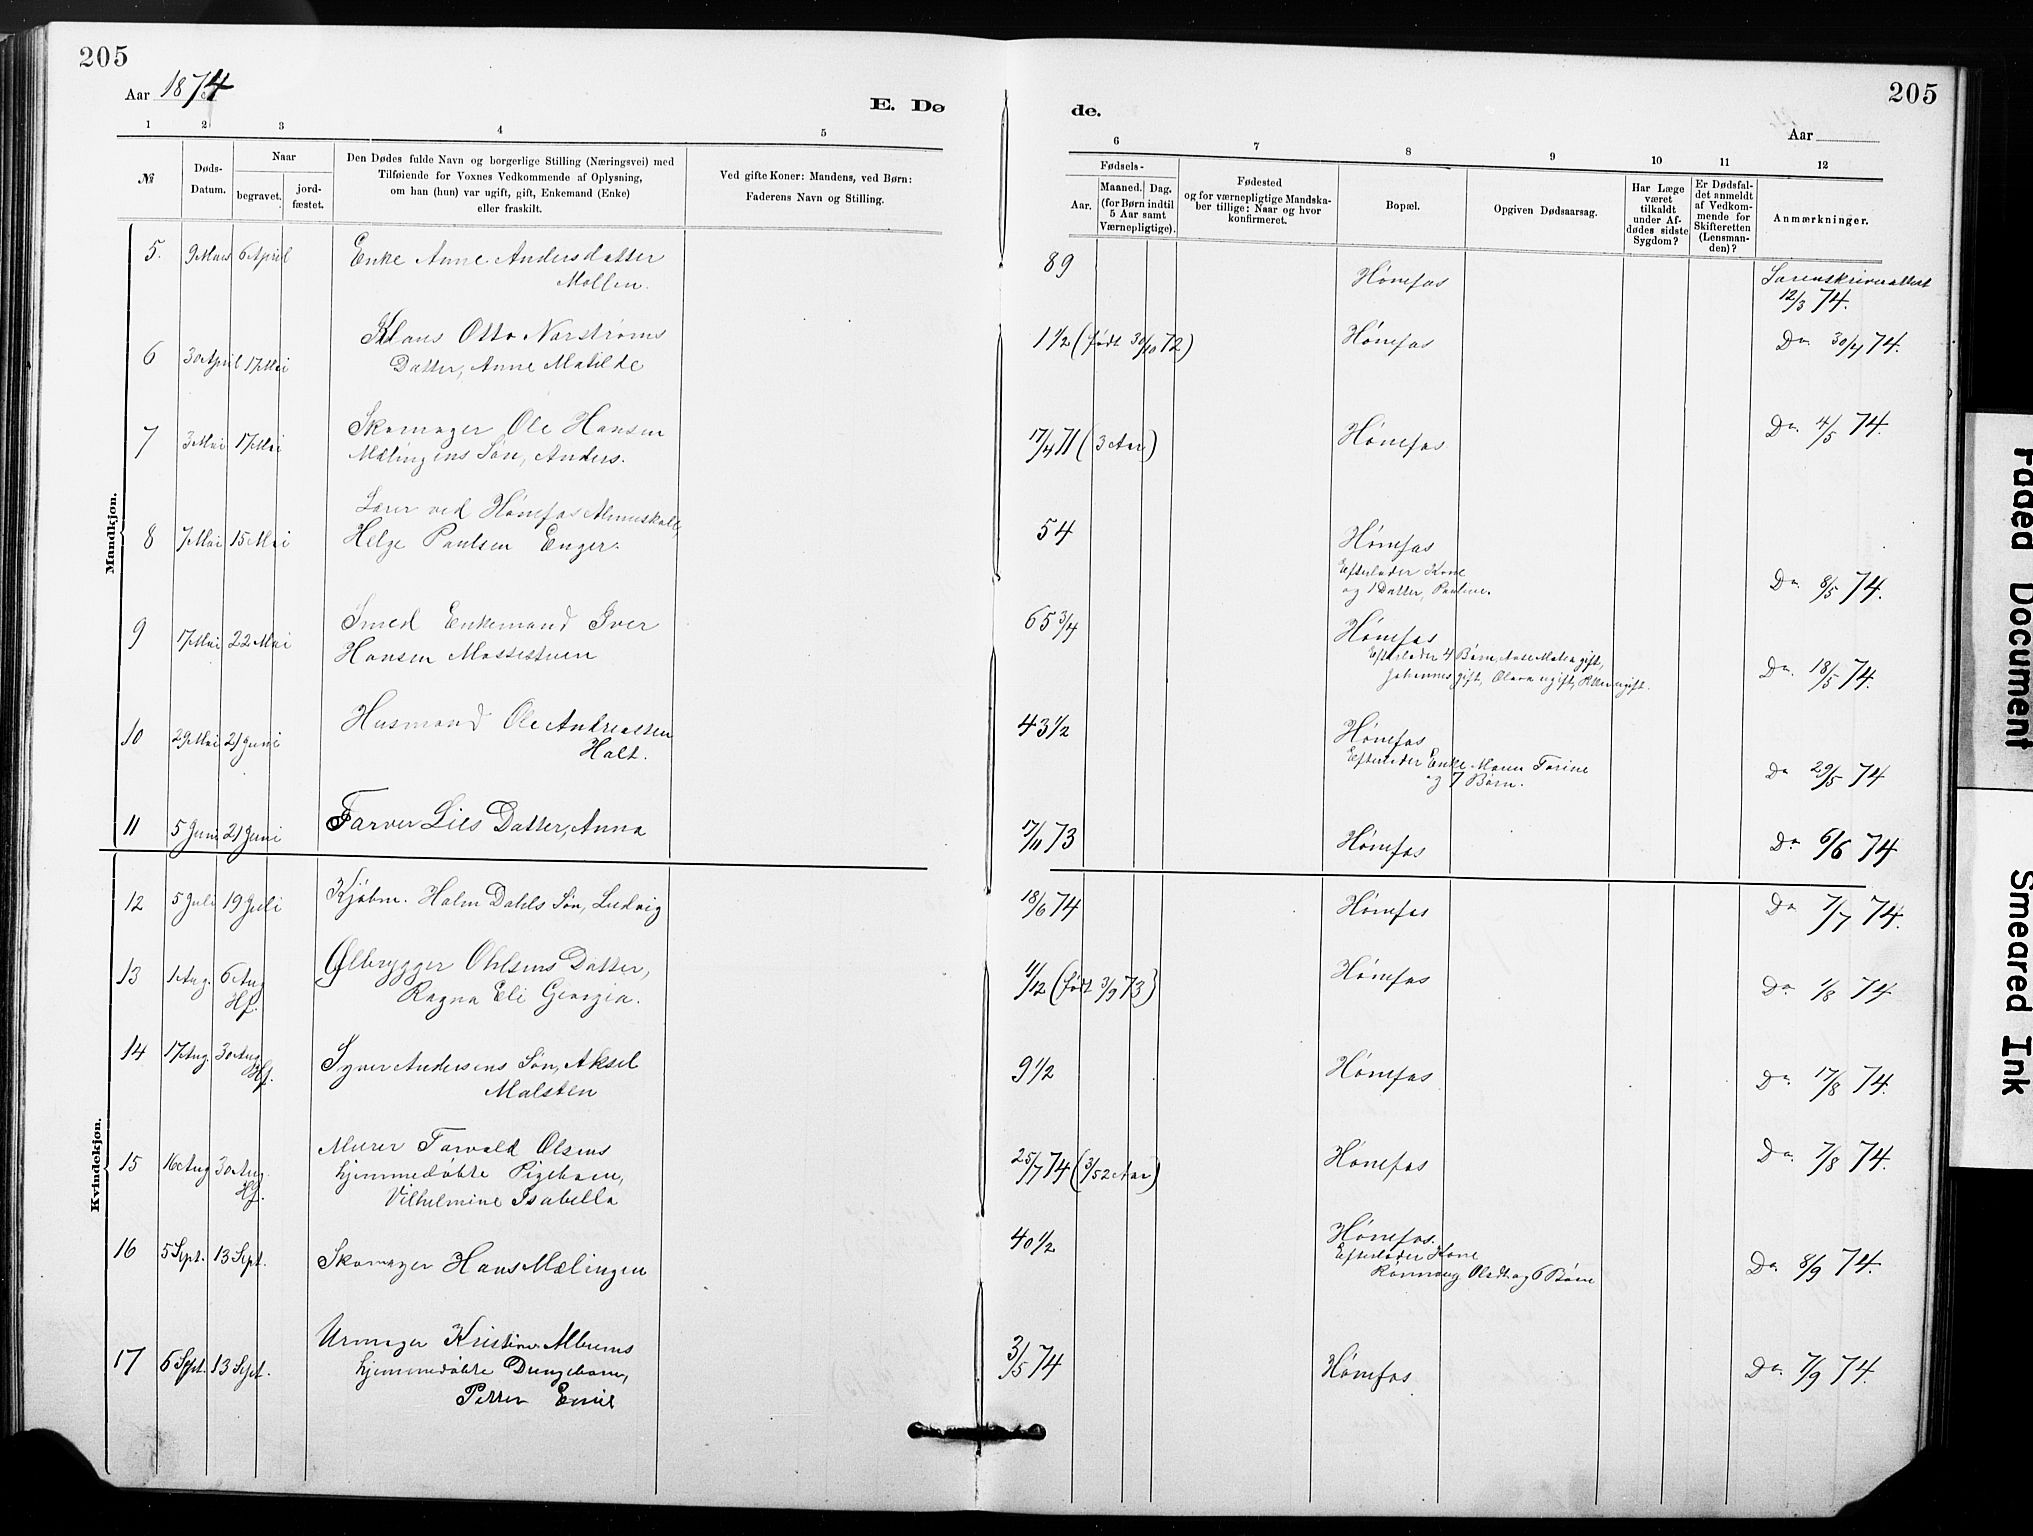 205
Aar 1874
E. Dø
1 2 3 4 5
№
Døds-
Datum.
Naar
begravet.
jord-
fæstet.
Den Dødes fulde Navn og borgerlige Stilling (Næringsvei) med
Tilføiende for Voxnes Vedkommende af Oplysning,
om han (hun) var ugift, gift, Enkemand (Enke)
eller fraskilt.
Ved gifte Koner: Mandens, ved Børn:
Faderens Navn og Stilling.
Mandkjøn.
5. 9 Mars 6 April Enke Anne Andersdatter
Mollen.
6 30 April 17 Mai Klaus Otto Norstrøms
Datter, Anne Matilde
7 3 Mai 17 Mai Skomager Ole Hansen
Mælingens Søn, Anders.
8 7 Mai 15 Mai Lærer ved Hønefos Almueskole,
Helge Paulsen Enger.
9 17 Mai 22 Mai Smed Enkemand Iver
Hansen Mossestuen
10 29 Mai 21 Juni Husmand Ole Andreassen
Holt.
11 5 Juni 21 Juni Farver Lies Datter, Anna
Kvindekjøn.
12 5 Juli 19 Juli Kjøbm. Holm Dahls Søn, Ludvig
13 1 Aug. 6 Aug Hf. Ølbrygger Ohlsens Datter,
Ragna Eli Georgia.
14 17 Aug. 30 Aug Hf. Syver Andersens Søn, Aksel
Malsten
15 16 Aug 30 Aug. Hf. Murer Torvald Olsens
hjemmedøbte Pigebarn,
Vilhelmine Isabella
16 5 Sept. 13 Sept. Skomager Hans Mælingen
17 6 Sept. 13 Sept. Urmager Kristian Albums
hjemmedøbte Drengebarn,
Petter Emil
205
de.
Aar
6 7 8 9 10 11 12
Fødsels-
Aar.
Maaned. Dag.
(for Børn indtil
5 Aar samt
Værnepligtige).
Fødested
og for værnepligtige Mandska-
ber tillige: Naar og hvor
konfirmeret.
Bopæl.
Opgiven Dødsaarsag.
Har Læge
været
tilkaldt
under Af-
dødes sidste
Sygdom?
Er Dødsfal-
det anmeldt
af Vedkom-
mende for
Skifteretten
(Lensman-
den)?
Anmærkninger.
89 Hønefos Sorenskriverattest
12/3 74.
1 1/2 (født 30/10 72) Hønefos Do. 30/4 74.
17/4 71 (3 Aar) Hønefos Do. 4/5 74.
54 Hønefos
Efterlader Kone
og 1 Datter, Pauline. Do. 8/5 74.
65 3/4 Hønefos
Efterlader 4 Børn, Anne Matea gift,
Johannes gift, Olava ugift, ugift. Do. 18/5 74.
43 1/2 Hønefos
Efterlader Enke Maren Torine
og 7 Børn. Do 29/5 74
17/11 73 Hønefos Do 6/6 74
18/6 74 Hønefos Do 7/7 74.
11/12 (født 3/9 73) Hønefos Do. 1/8 74
9 1/2 Hønefos Do. 17/8 74.
25/7 74 (3/52 Aar) Hønefos Do. 7/8 74.
40 1/2 Hønefos.
Efterlader Kone
Rønnaug Olsdt og 6 Børn Do. 8/9 74.
3/5 74 Hønefos Do. 7/9 74.
Faded Document
Smeared Ink